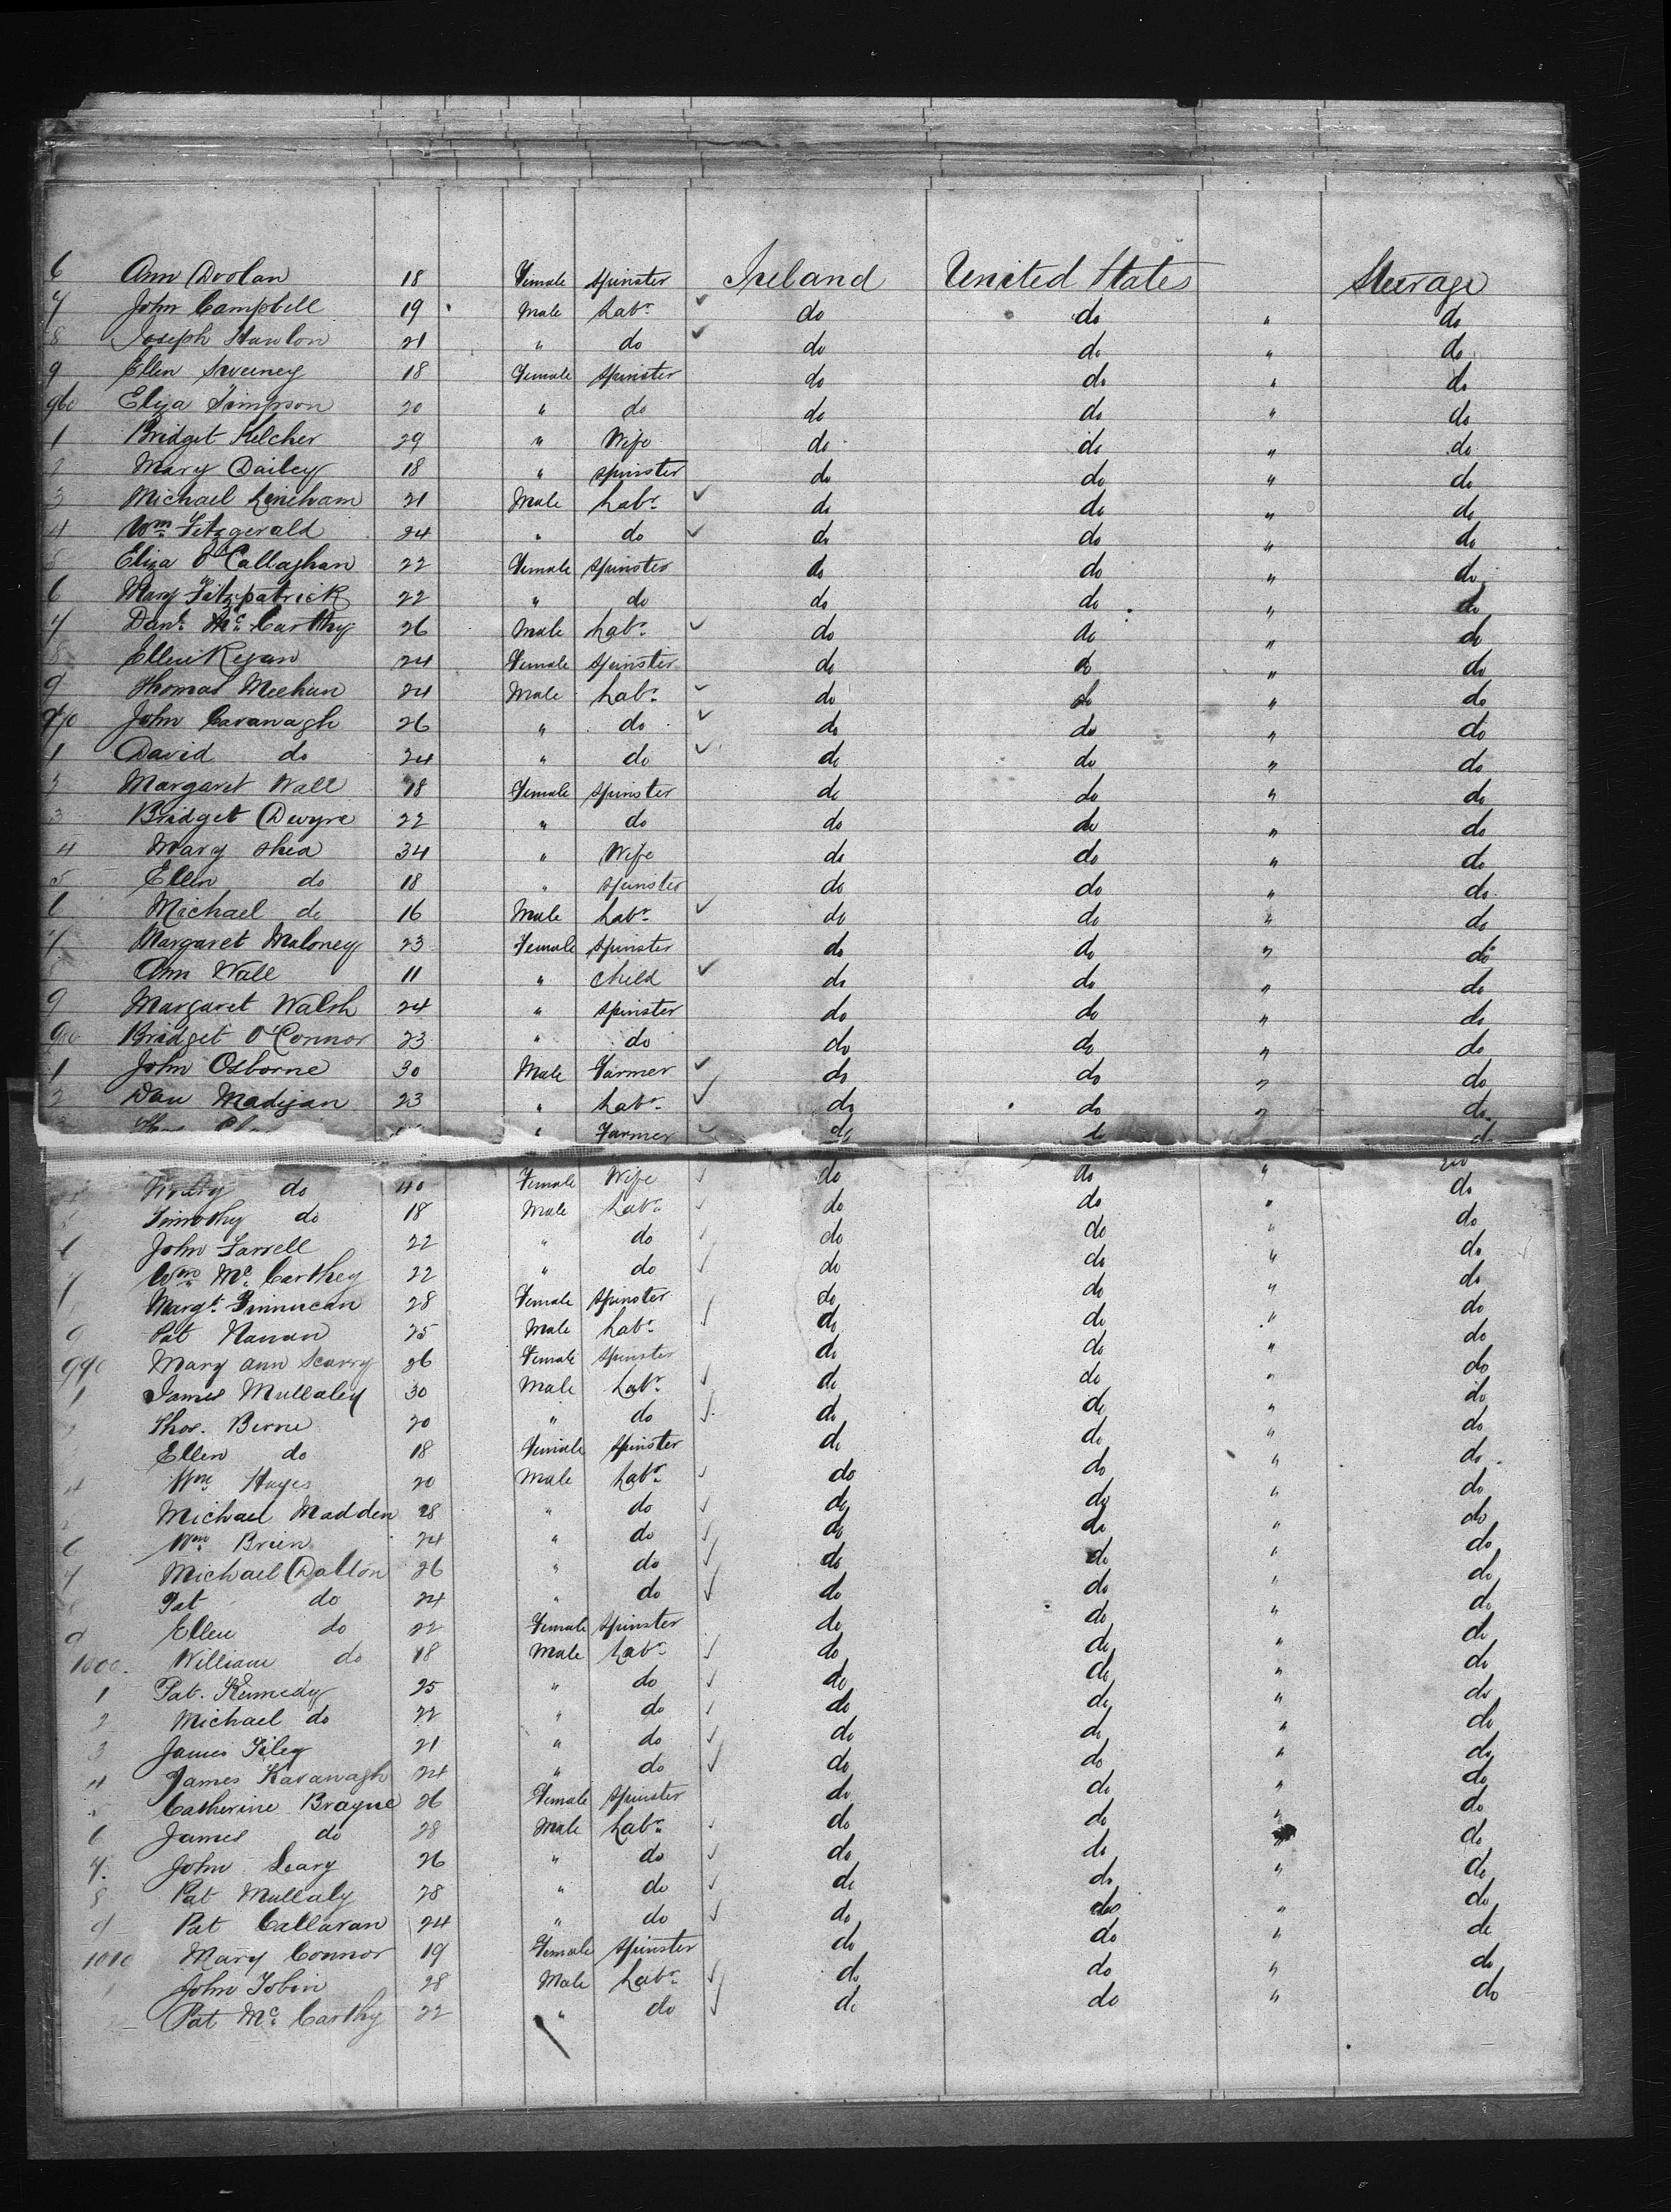 6 Ann Doolan 18 Female Spinster Ireland United States Steerage
7 John Campbell 19 Male Labr. do do " do
8 Joseph Hanlon 21 " do do do " do
9 Ellen Sweeney 18 Female Spinster do do " do
960 Eliza Simpson 20 " do do do " do
1 Bridget Kelcher 29 " Wife do do " do
2 Mary Dailey 18 " Spinster do do " do
3 Michael Lineham 21 Male Labr. do do " do
4 Wm. Fitzgerald 24 " do do do " do
5 Eliza O'Callaghan 22 Female Spinster do do " do
6 Mary Fitzpatrick 22 " do do do " do
7 Danl. Mc. Carthy 26 Male Labr. do do " do
8 Ellen Regan 24 Female Spinster do do " do
9 Thomas Meehan 24 Male Labr. do do " do
970 John Cavanagh 26 " do do do " do
1 David do 24 " do do do " do
2 Margaret Wall 18 Female Spinster do do " do
3 Bridget Dwyre 22 " do do do " do
4 Mary Shea 34 " Wife do do " do
5 Ellen do 18 " Spinster do do " do
6 Michael do 16 Male Labr. do do " do
7 Margaret Maloney 23 Female Spinster do do " do
Ann Wall 11 " Child do do " do
9 Margaret Walsh 24 " Spinster do do " do
980 Bridget O'Connor 23 " do do do " do
1 John Osborne 30 Male Farmer do do " do
2 Dan Madigan 23 " Labr. do do " do
" Farmer do do do
do 40 Female Wife do do " do
5 Timothy do 18 Male Labr. do do " do
6 John Farrell 22 " do do do " do
7 Wm. Mc. Carthey 22 " do do do " do
Margt. Finnucan 28 Female Spinster do do " do
9 Pat Hanan 25 Male Labr. do do " do
990 Mary Ann Scarry 26 Female Spinster do do " do
1 James Mullaley 30 Male Labr. do do " do
2 Thos. Birne 20 " do do do " do
Ellen do 18 Female Spinster do do " do
4 Wm. Hayes 20 Male Labr. do do " do
Michael Madden 28 " do do do " do
6 Wm. Brien 24 " do do do " do
7 Michael Dalton 26 " do do do " do
8 Pat do 24 " do do do " do
9 Ellen do 22 Female Spinster do do " do
1000. William do 18 Male Labr. do do " do
1 Pat. Kennedy 25 " do do do " do
2 Michael do 22 " do do do " do
3 James 21 " do do do " do
4 James Kavanagh 24 " do do do " do
5 Catherine Brayne 26 Female Spinster do do " do
6 James do 28 Male Labr. do do " do
7. John Leary 26 " do do do " do
8 Pat Mullaly 28 " do do do " do
9 Pat Callavan 24 " do do do " do
1010 Mary Connor 19 Female Spinster do do " do
1 John Tobin 28 Male Labr. do do " do
2 Pat Mc. Carthy 22 " do do do " do